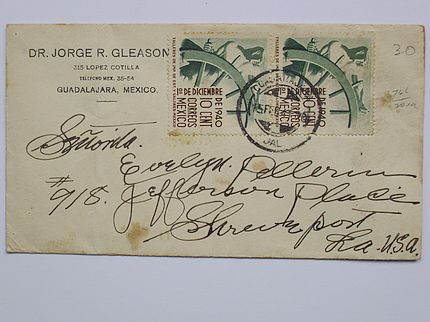 DR. JORGE R. GLEASON
315 LOPEZ COTILLA
TELEFONO MEX. 35-54
GUADALAJARA, MEXICO.
1o. DE DICIEMBRE DE 1940
10 CENT
CORREOS
MEXICO
1o. DE DICIEMBRE DE 1940
10 CENT
CORREOS
MEXICO
JAL
30
Señorita.
Evelyn Pellerin
#918. Jefferson Place
Shreveport
La. U.S.A.